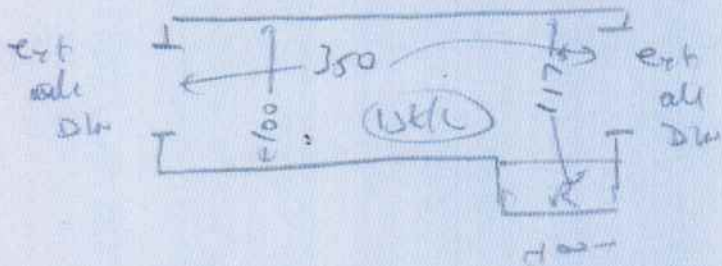 ext
all
DW
350
100
W/C
117
ext
all
DW
100